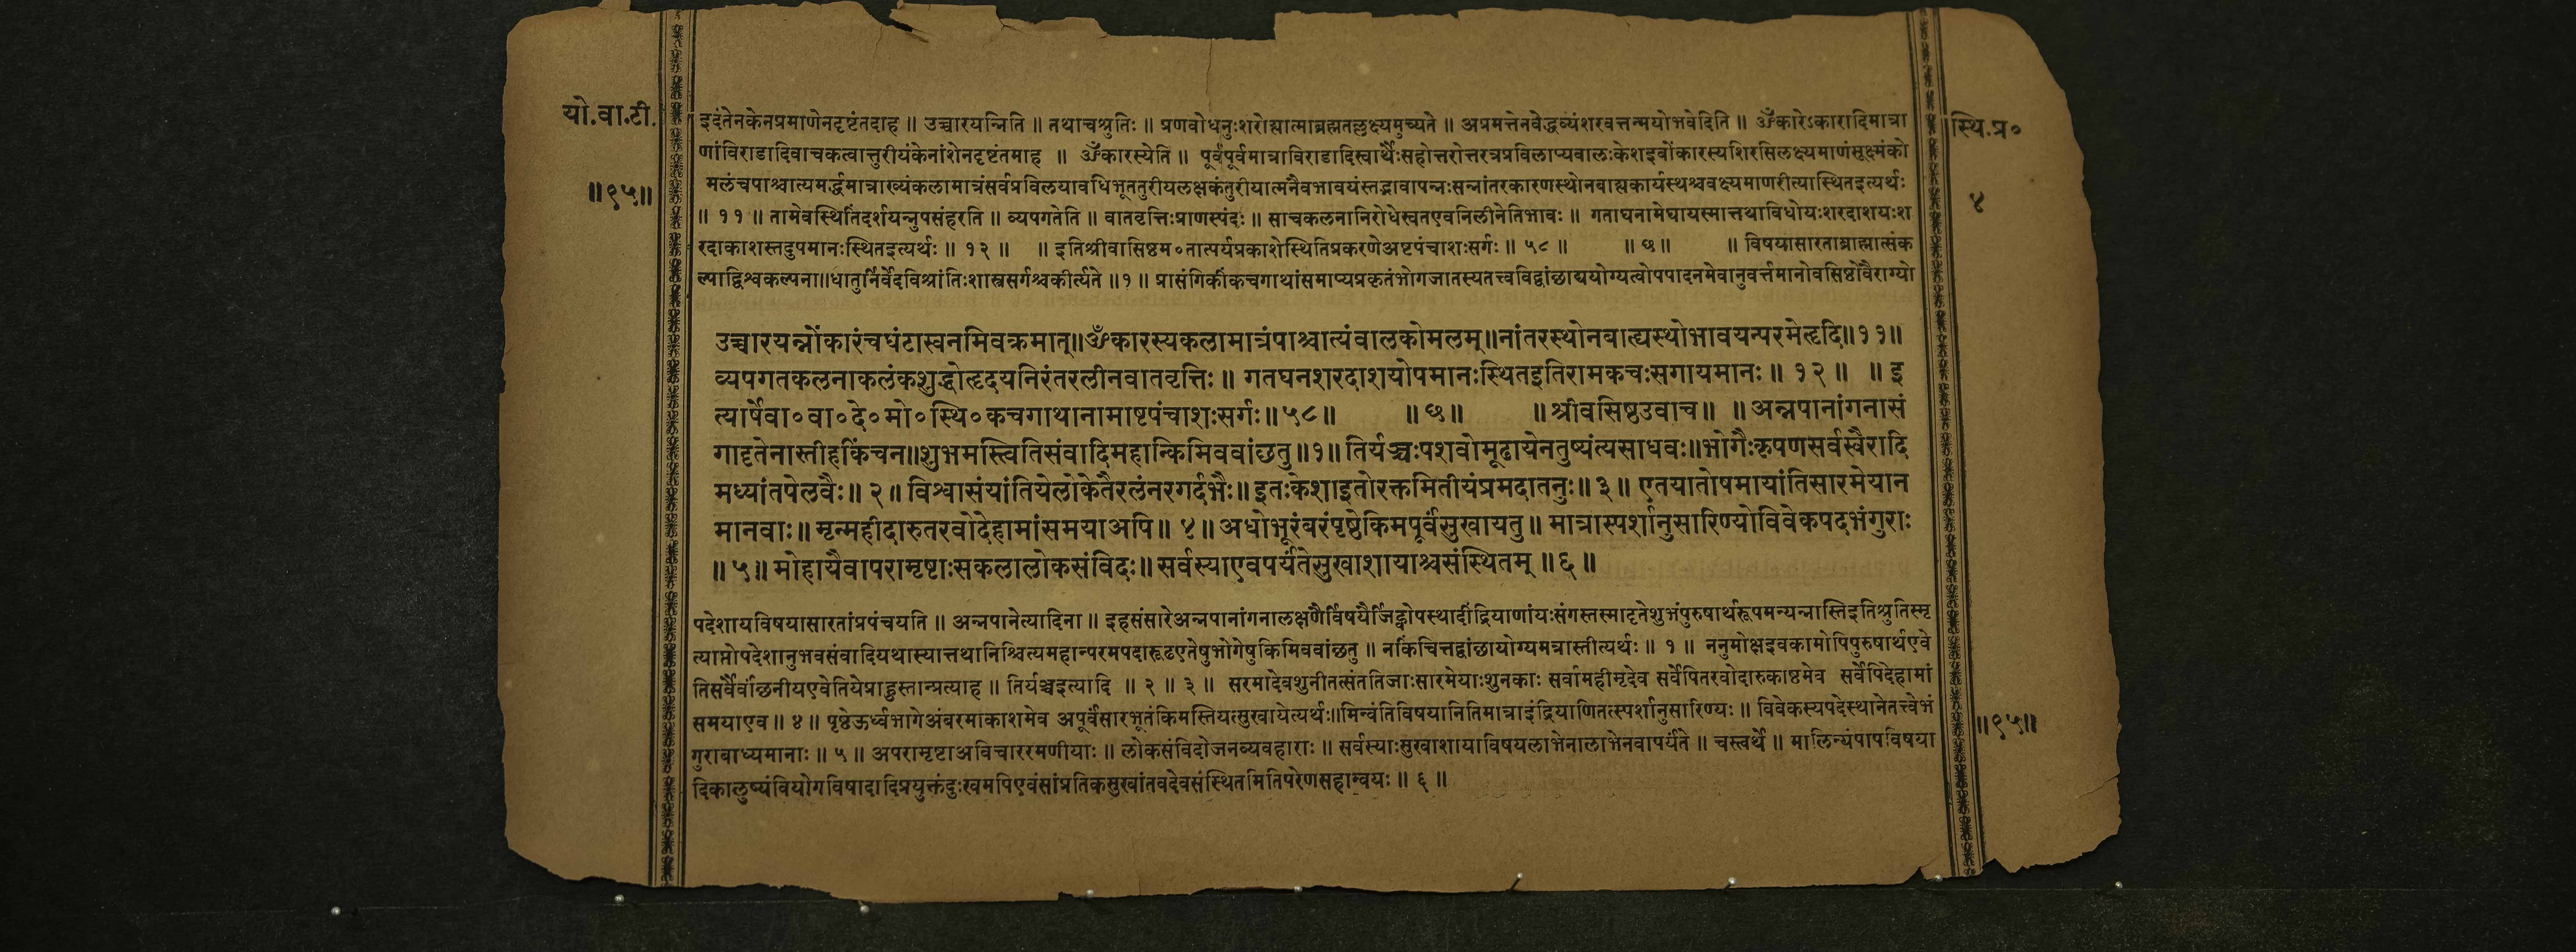 यो.वा.टी.
॥९५॥
स्थि.प्र०
४
इदंतेनकेनप्रमाणेनदृष्टंतदाह ॥ उच्चारयन्निति ॥ तथाचश्रुतिः ॥ प्रणवोधनुःशरोह्यात्माब्रह्मतल्लक्ष्यमुच्यते ॥ अप्रमत्तेनवेद्धव्यंशरवत्तन्मयोभवेदिति ॥ ॐकारेऽकारादिमात्रा
णांविराडादिवाचकत्वात्तुरीयंकेनांशेनदृष्टंतमाह ॥ ॐकारस्येति ॥ पूर्वपूर्वमात्राविराडादिस्वार्थैःसहोत्तरोत्तरत्रप्रविलाप्यवालःकेशइवोंकारस्यशिरसिलक्ष्यमाणंसूक्ष्मंको
मलंचपाश्चात्यमर्द्धमात्राख्यंकलामात्रंसर्वप्रविलयावधिभूततुरीयलक्षकंतुरीयात्मनैवभावयंस्तद्भावापन्नःसन्नांतरकारणस्थोनबाह्यकार्यस्थश्चवक्ष्यमाणरीत्यास्थितइत्यर्थः
॥ ११ ॥ तामेवस्थितिंदर्शयन्नुपसंहरति ॥ व्यपगतेति ॥ वातवृत्तिःप्राणस्पंदः ॥ साचकलनानिरोधेस्वतएवनिलीनेतिभावः ॥ गताघनामेघायस्मात्तथाविधोयःशरदाशयःश
रदाकाशस्तदुपमानःस्थितइत्यर्थः ॥ १२ ॥ ॥ इतिश्रीवासिष्ठम०तात्पर्यप्रकाशेस्थितिप्रकरणेअष्टपंचाशःसर्गः ॥ ५८ ॥ ॥ छ ॥ ॥ विषयासारताब्राह्मात्संक
ल्पाद्विश्वकल्पना॥धातुर्निर्वेदविश्रांतिःशास्त्रसर्गश्चकीर्त्यते ॥१॥ प्रासंगिकींकचगाथांसमाप्यप्रकृतंभोगजातस्यतत्त्वविद्वांछाद्ययोग्यत्वोपपादनमेवानुवर्त्तमानोवसिष्ठोवैराग्यो
उच्चारयन्नोंकारंचघंटास्वनमिवक्रमात्॥ॐकारस्यकलामात्रंपाश्चात्यंवालकोमलम्॥नांतरस्थोनबाह्यस्थोभावयन्परमेहृदि॥११॥
व्यपगतकलनाकलंकशुद्धोहृदयनिरंतरलीनवातवृत्तिः ॥ गतघनशरदाशयोपमानःस्थितइतिरामकचःसगायमानः ॥ १२ ॥ ॥ इ
त्यार्षेवा०वा०दे०मो०स्थि०कचगाथानामाष्टपंचाशःसर्गः॥५८॥ ॥छ॥ ॥श्रीवसिष्ठउवाच॥ ॥अन्नपानांगनासं
गादृतेनास्तीहकिंचन॥शुभमस्त्वितिसंवादिमहान्किमिववांछतु॥१॥तिर्यञ्चःपशवोमूढायेनतुष्यंत्यसाधवः॥भोगैःकृपणसर्वस्वैरादि
मध्यांतपेलवैः॥२॥विश्वासंयांतियेलोकेतैरलंनरगर्दभैः॥इतःकेशाइतोरक्तमितीयंप्रमदातनुः॥३॥ एतयातोषमायांतिसारमेयान
मानवाः॥मृन्महीदारुतरवोदेहामांसमयाअपि॥४॥अधोभूरंबरंपृष्ठेकिमपूर्वंसुखायतु॥ मात्रास्पर्शानुसारिण्योविवेकपदभंगुराः
॥५॥मोहायैवापरामृष्टाःसकलालोकसंविदः॥सर्वस्याएवपर्यंतेसुखाशायाश्चसंस्थितम्॥६॥
पदेशायविषयासारतांप्रपंचयति ॥ अन्नपानेत्यादिना ॥ इहसंसारेअन्नपानांगनालक्षणैर्विषयैर्जिह्वोपस्थादींद्रियाणांयःसंगस्तस्मादृतेशुभंपुरुषार्थरूपमन्यन्नास्तिइतिश्रुतिस्मृ
त्याप्तोपदेशानुभवसंवादियथास्यात्तथानिश्चित्यमहान्परमपदारूढएतेषुभोगेषुकिमिववांछतु ॥ नकिंचित्तद्वांछायोग्यमत्रास्तीत्यर्थः ॥ १ ॥ ननुमोक्षइवकामोपिपुरुषार्थएवे
तिसर्वैर्वांछनीयएवेतियेप्राहुस्तान्प्रत्याह ॥ तिर्यञ्चइत्यादि ॥ २ ॥ ३ ॥ सरमादेवशुनीतत्संततिजाःसारमेयाःशुनकाः सर्वामहीमृदेव सर्वेपितरवोदारुकाष्ठमेव सर्वेपिदेहामां
समयाएव ॥ ४ ॥ पृष्ठेऊर्ध्वभागेअंबरमाकाशमेव अपूर्वंसारभूतंकिमस्तियत्सुखायेत्यर्थः॥मिन्वंतिविषयानितिमात्राइंद्रियाणितत्स्पर्शानुसारिण्यः ॥ विवेकस्यपदेस्थानेतत्त्वेभं
गुराबाध्यमानाः ॥ ५ ॥ अपरामृष्टाअविचाररमणीयाः ॥ लोकसंविदोजनव्यवहाराः ॥ सर्वस्याःसुखाशायाविषयलाभेनालाभेनवापर्यंते ॥ चस्त्वर्थे ॥ मालिन्यंपापविषया
दिकालुष्यंवियोगविषादादिप्रयुक्तंदुःखमपिएवंसांप्रतिकसुखांतवदेवसंस्थितमितिपरेणसहान्वयः ॥ ६ ॥
॥९५॥